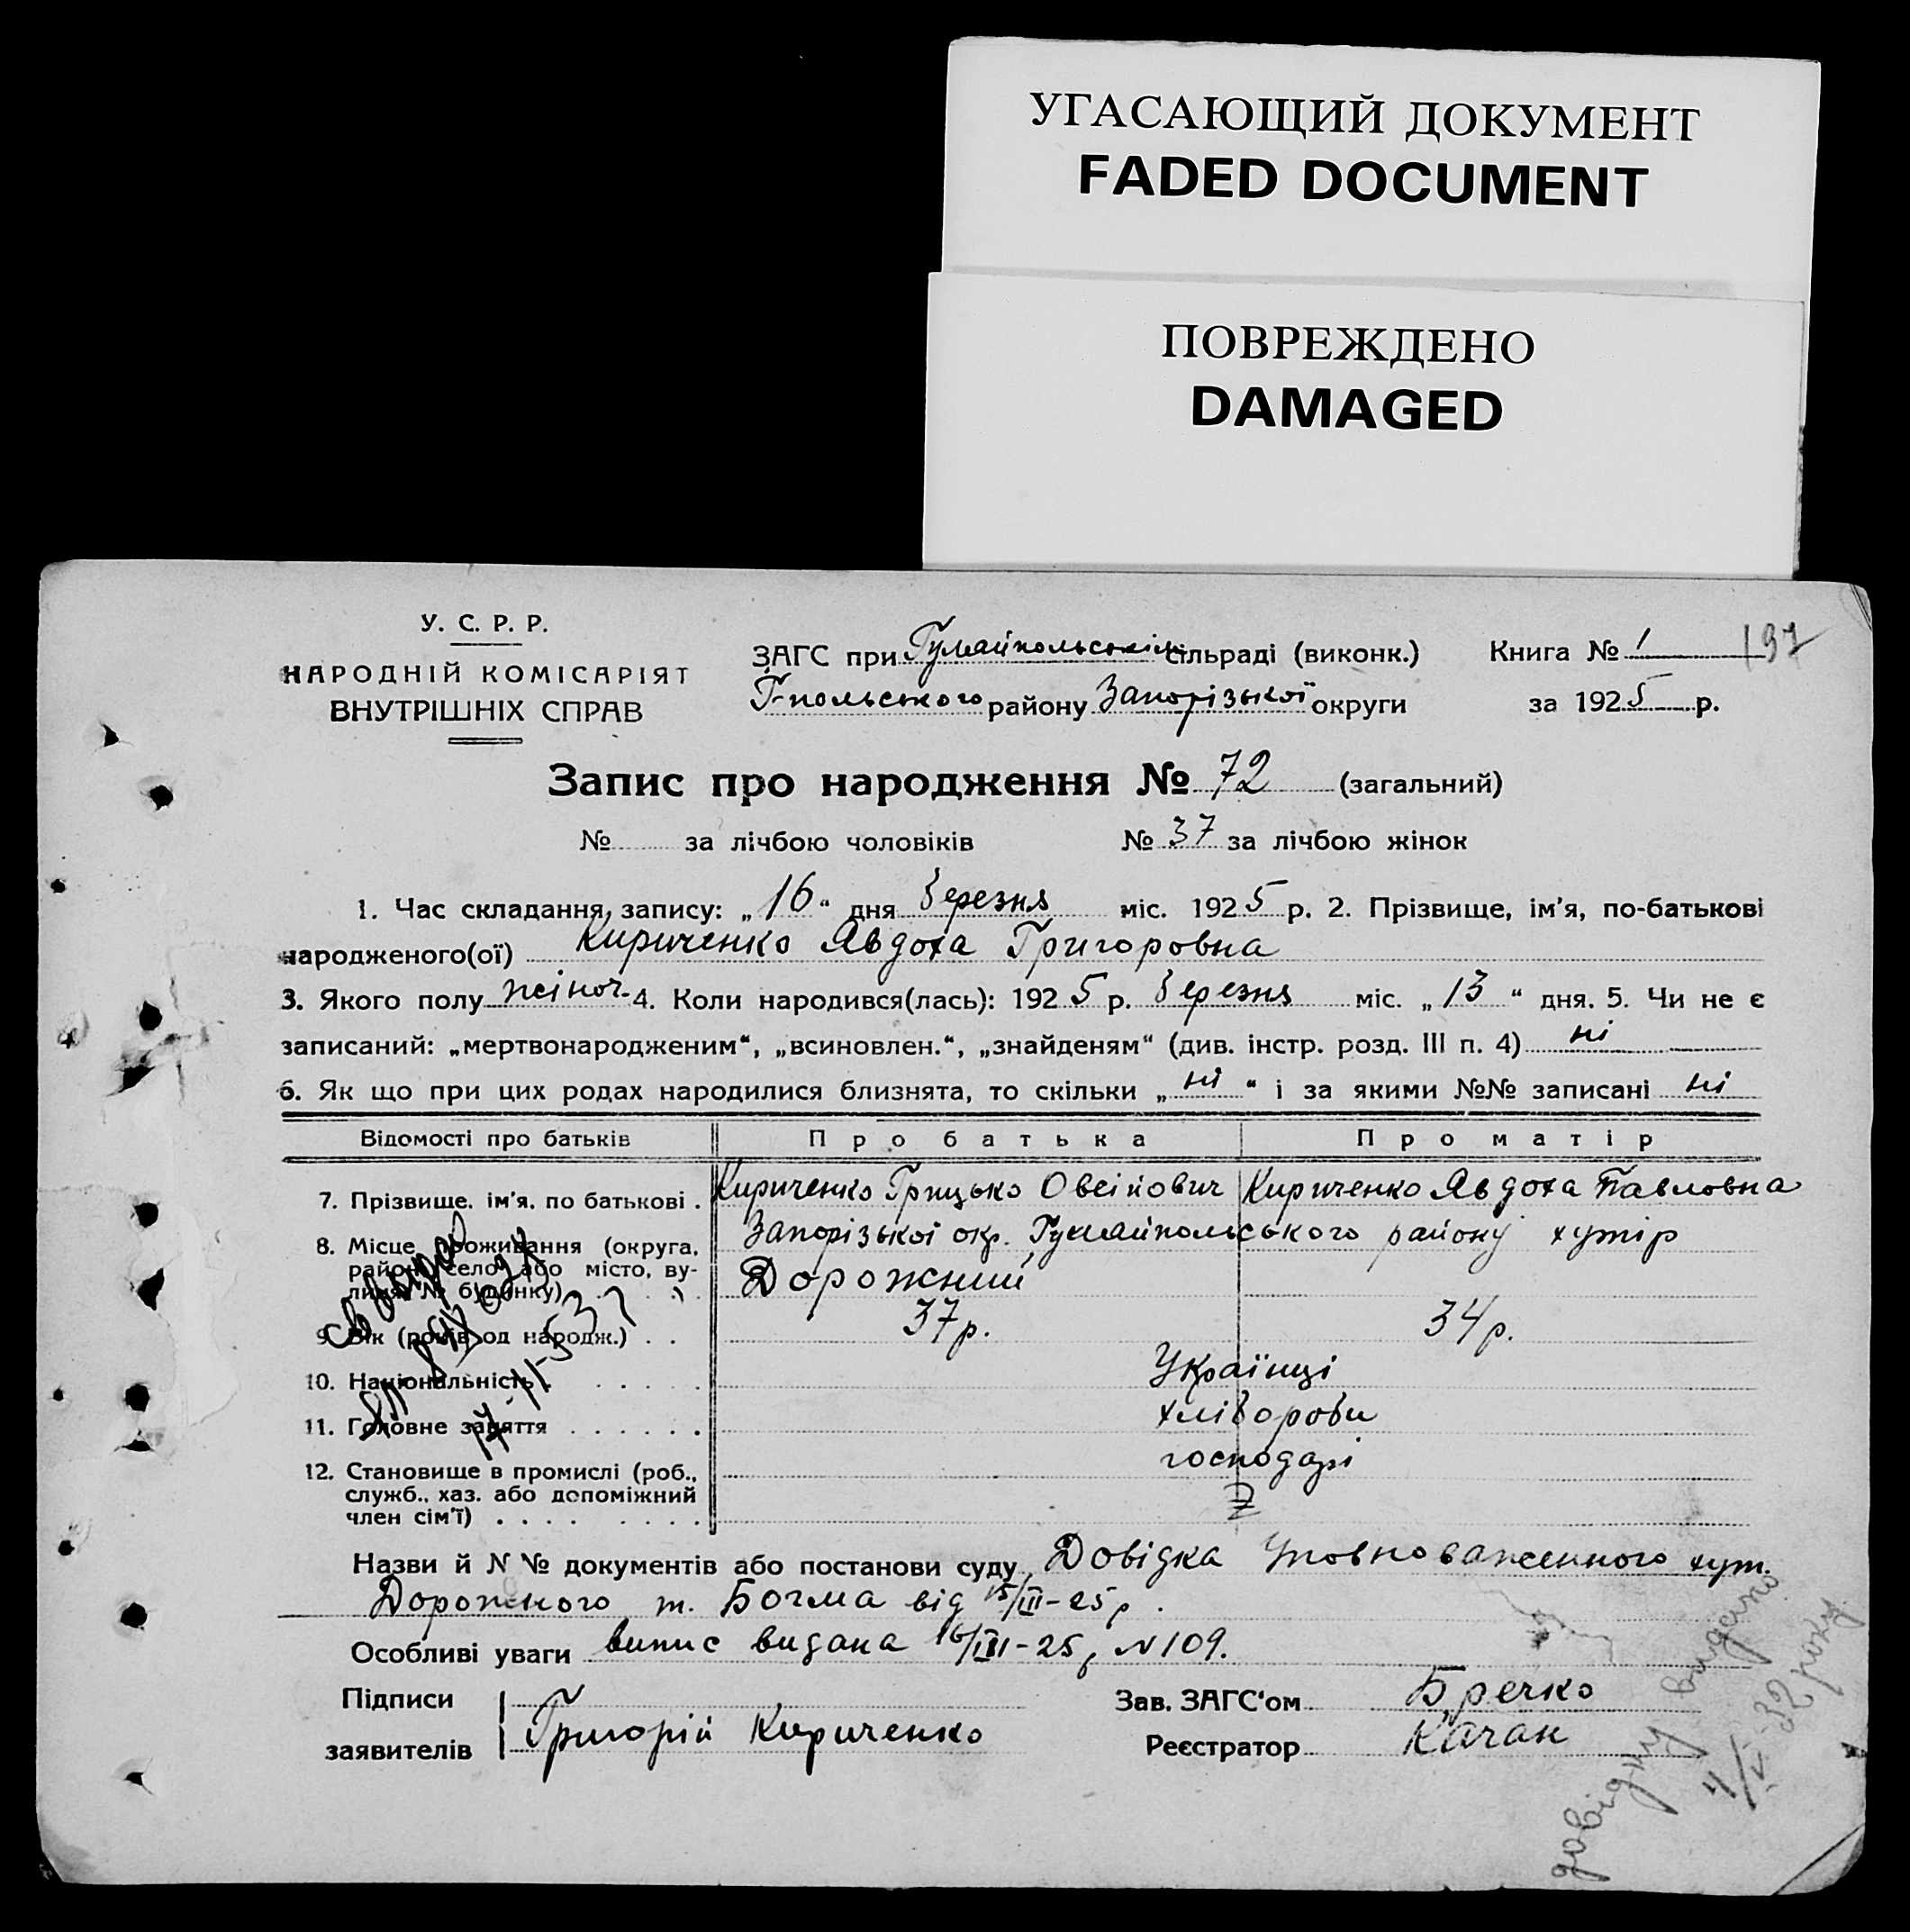 УГАСАЮЩИЙ ДОКУМЕНТ
FADED DOCUMENT
ПОВРЕЖДЕНО
DAMAGED
У. С. Р. Р.
НАРОДНІЙ КОМІСАРІЯТ
ВНУТРІШНІХ СПРАВ
ЗАГС при Гуляйпольській сільраді (виконк.)
Г-польського району Запорізької округи
Книга № 1 197
за 1925 р.
Запис про народження № 72 (загальний)
№ за лічбою чоловіків № 37 за лічбою жінок
1. Час складання запису: „16“ дня березня міс. 1925 р. 2. Прізвище, ім'я, по-батькові
народженого(ої) Кириченко Явдоха Григоровна
3. Якого полу жіноч. 4. Коли народився(лась): 1925 р. березня міс. „13“ дня. 5. Чи не є
записаний: „мертвонародженим“, „всиновлен.“, „знайденям“ (див. інстр. розд. III п. 4) ні
6. Як що при цих родах народилися близнята, то скільки „ні“ і за якими №№ записані ні
Відомості про батьків Про батька Про матір
7. Прізвище, ім'я, по батькові . Кириченко Грицько Овсійович Кириченко Явдоха Павловна
8. Місце проживання (округа, Запорізької окр. Гуляйпольського району хутір
район, село, або місто, ву-
лиця, № будинку) . . . . Дорожний
9. Вік (років од народж.) . . 37 р. 34 р.
10. Національність . . . . . Українці
11. Головне заняття . . . . . . хлібороби
12. Становище в промислі (роб., господарі
служб., хаз. або допоміжний
член сім'ї) . . . . . . . .
Назви й №№ документів або постанови суду Довідка Уповноваженного хут.
Дорожного т. Бочма від 15/III-25 р.
Особливі уваги випис видана 16/III-25 р №109.
Підписи
заявителів Григорій Кириченко
Зав. ЗАГС'ом Бречко
Реєстратор Качан
довідку видано
4/V-32 року